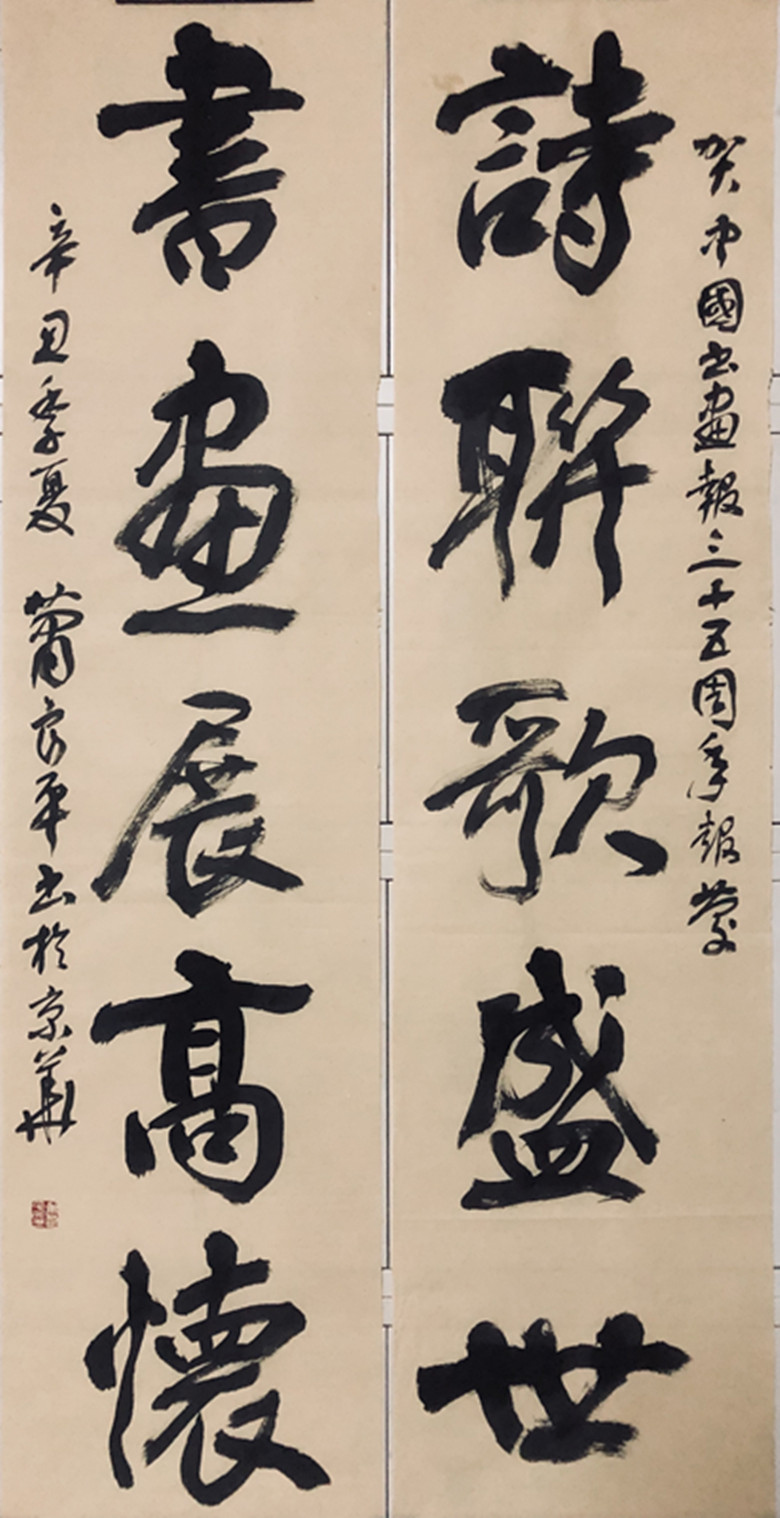 贺中國书畫報三十五周年報慶
詩聯歌盛世
書畫展高懷
辛丑季夏 蕭平书於京華